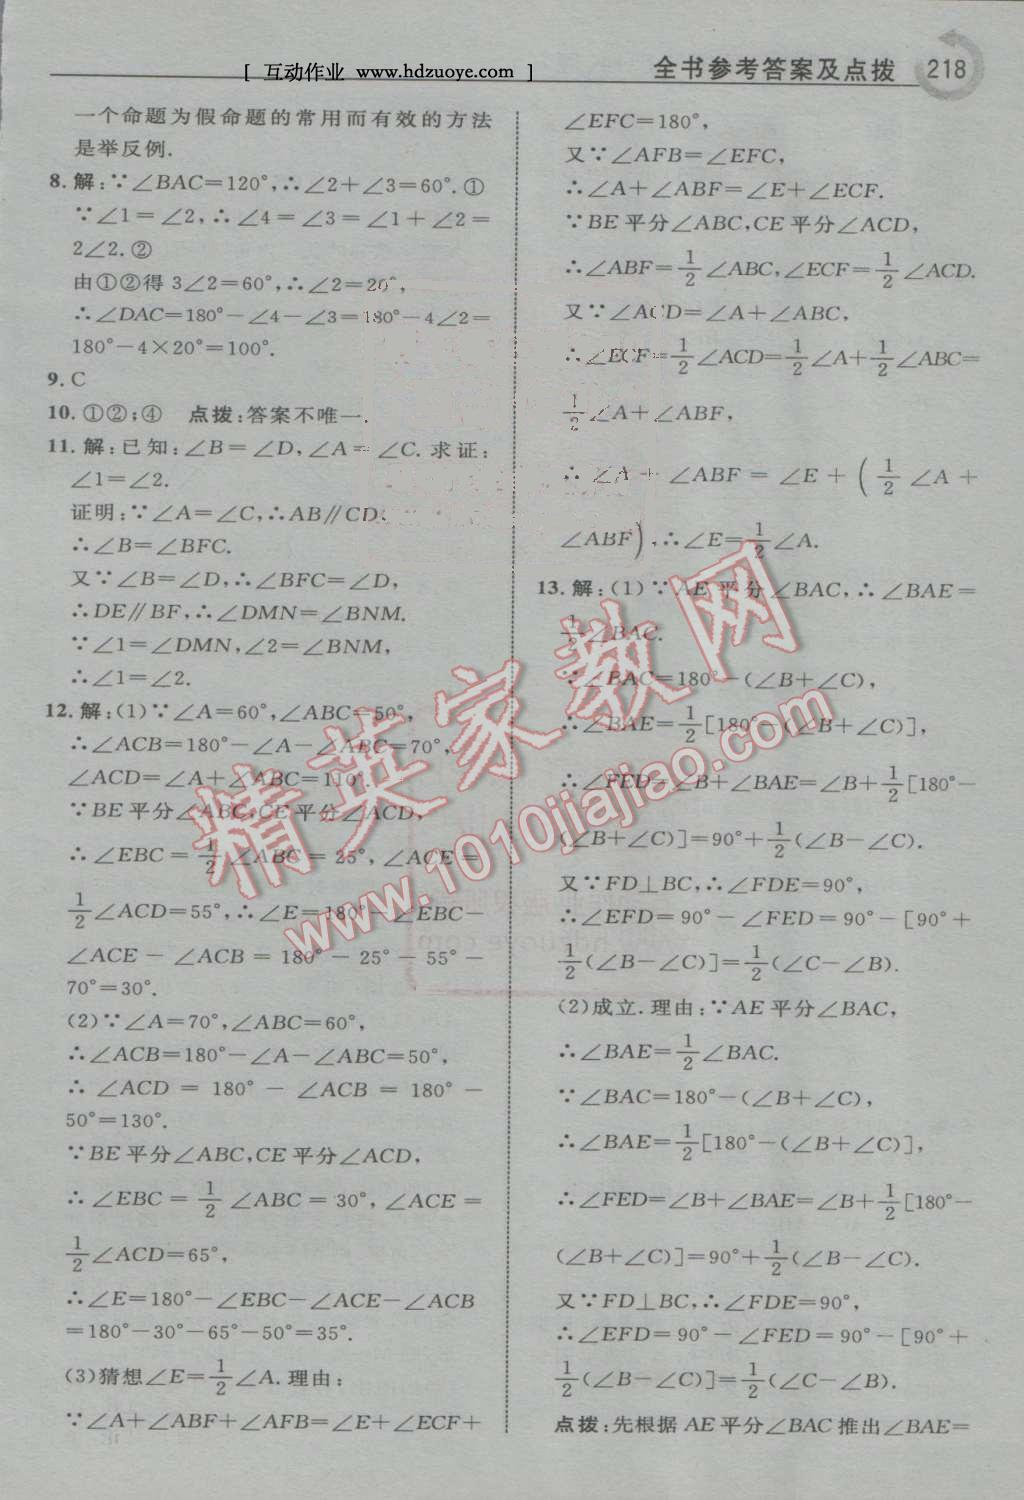 [ 互动作业 www.hdzuoye.com ]
全书参考答案及点拨 218
一个命题为假命题的常用而有效的方法
是举反例.
8.解:∵∠BAC=120°,∴∠2+∠3=60°.①
∵∠1=∠2,∴∠4=∠3=∠1+∠2=
2∠2.②
由①②得 3∠2=60°,∴∠2=20°,
∴∠DAC=180°-∠4-∠3=180°-4∠2=
180°-4×20°=100°.
9.C
10.①②;④ 点拨:答案不唯一.
11.解:已知:∠B=∠D,∠A=∠C.求证:
∠1=∠2.
证明:∵∠A=∠C,∴AB∥CD.
∴∠B=∠BFC.
又∵∠B=∠D,∴∠BFC=∠D,
∴DE∥BF,∴∠DMN=∠BNM.
∵∠1=∠DMN,∠2=∠BNM,
∴∠1=∠2.
12.解:(1)∵∠A=60°,∠ABC=50°,
∴∠ACB=180°-∠A-∠ABC=70°,
∠ACD=∠A+∠ABC=110°.
∵BE平分∠ABC,CE平分∠ACD,
∴∠EBC=1/2∠ABC=25°,∠ACE=
1/2∠ACD=55°,∴∠E=180°-∠EBC-
∠ACE-∠ACB=180°-25°-55°-
70°=30°.
(2)∵∠A=70°,∠ABC=60°,
∴∠ACB=180°-∠A-∠ABC=50°,
∴∠ACD=180°-∠ACB=180°-
50°=130°.
∵BE平分∠ABC,CE平分∠ACD,
∴∠EBC=1/2∠ABC=30°,∠ACE=
1/2∠ACD=65°,
∴∠E=180°-∠EBC-∠ACE-∠ACB
=180°-30°-65°-50°=35°.
(3)猜想∠E=1/2∠A.理由:
∵∠A+∠ABF+∠AFB=∠E+∠ECF+
∠EFC=180°,
又∵∠AFB=∠EFC,
∴∠A+∠ABF=∠E+∠ECF.
∵BE平分∠ABC,CE平分∠ACD,
∴∠ABF=1/2∠ABC,∠ECF=1/2∠ACD.
又∵∠ACD=∠A+∠ABC,
∴∠ECF=1/2∠ACD=1/2∠A+1/2∠ABC=
1/2∠A+∠ABF,
∴∠A+∠ABF=∠E+(1/2∠A+
∠ABF),∴∠E=1/2∠A.
13.解:(1)∵AE平分∠BAC,∴∠BAE=
1/2∠BAC.
∵∠BAC=180°-(∠B+∠C),
∴∠BAE=1/2[180°-(∠B+∠C)],
∴∠FED=∠B+∠BAE=∠B+1/2[180°-
(∠B+∠C)]=90°+1/2(∠B-∠C).
又∵FD⊥BC,∴∠FDE=90°,
∴∠EFD=90°-∠FED=90°-[90°+
1/2(∠B-∠C)]=1/2(∠C-∠B).
(2)成立.理由:∵AE平分∠BAC,
∴∠BAE=1/2∠BAC.
∵∠BAC=180°-(∠B+∠C),
∴∠BAE=1/2[180°-(∠B+∠C)],
∴∠FED=∠B+∠BAE=∠B+1/2[180°-
(∠B+∠C)]=90°+1/2(∠B-∠C).
又∵FD⊥BC,∴∠FDE=90°,
∴∠EFD=90°-∠FED=90°-[90°+
1/2(∠B-∠C)]=1/2(∠C-∠B).
点拨:先根据AE平分∠BAC推出∠BAE=
精英家教网
www.1010jiajiao.com